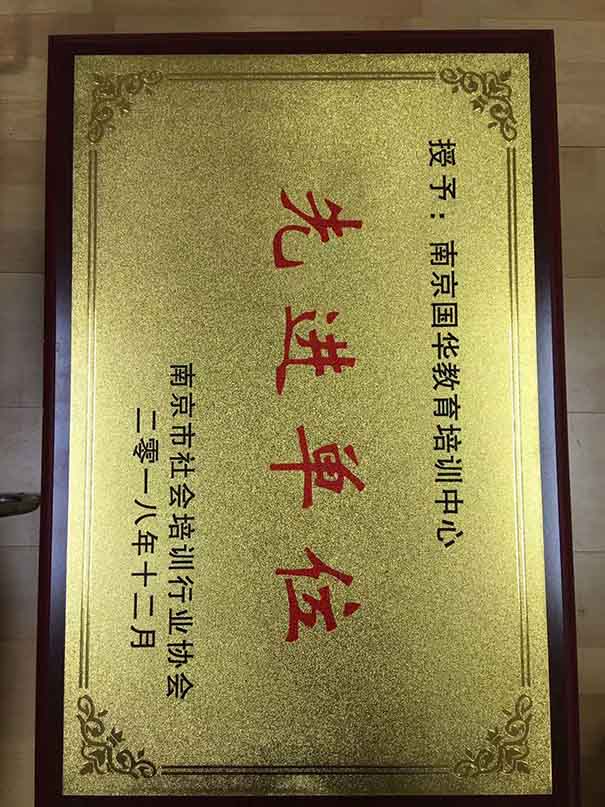 授予：南京国华教育培训中心
先进单位
南京市社会培训行业协会
二零一八年十二月